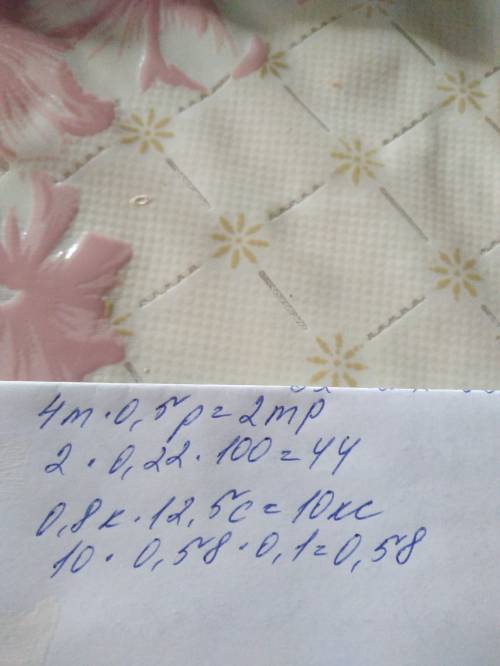 4m·0,5p=2mp
2·0,22·100=44
0,8к·12,5c=10кc
10·0,58·0,1=0,58